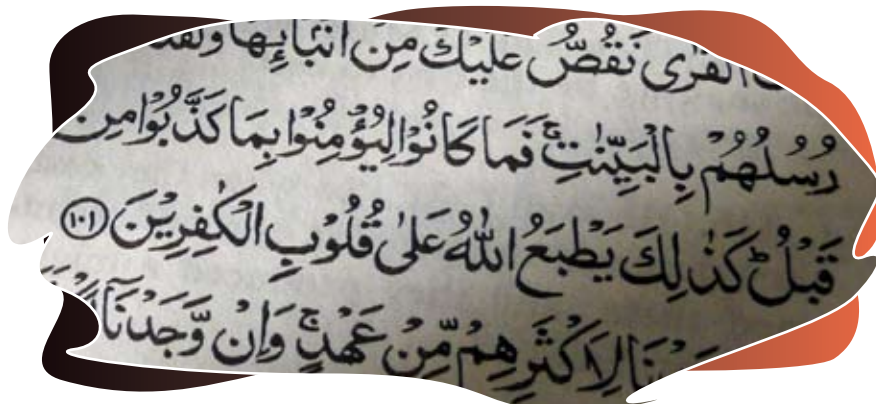 الْقُرٰى نَقُصُّ عَلَيْكَ مِنْ اَنْۢبَآئِهَا وَلَقَدْ
رُسُلُهُمْ بِالْبَيِّنٰتِ ۚ فَمَا كَانُوْا لِيُؤْمِنُوْا بِمَا كَذَّبُوْا مِنْ
قَبْلُ ؕ كَذٰلِكَ يَطْبَعُ اللّٰهُ عَلٰى قُلُوْبِ الْكٰفِرِيْنَ ﴿١٠١﴾
لِاَكْثَرِهِمْ مِّنْ عَهْدٍ ۚ وَاِنْ وَّجَدْنَاۤ